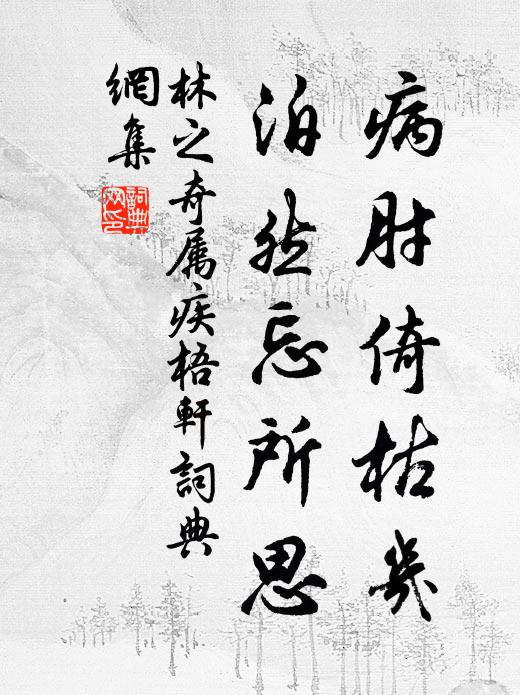 病肘倚枯几
泊然忘所思
林之奇属疾梧軒詞典
網集
詞典
网印